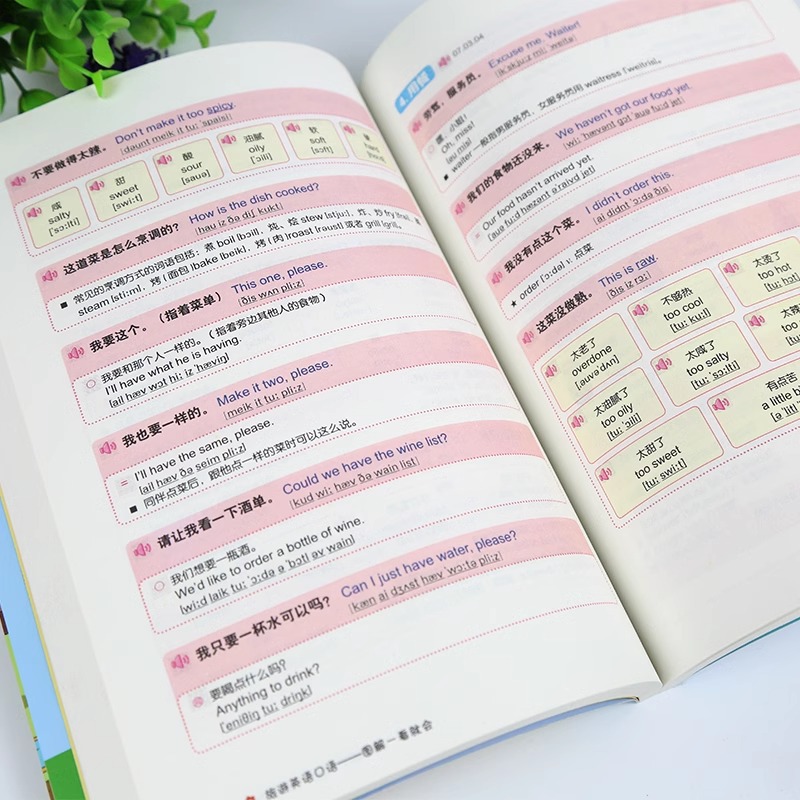 不要做得太辣。 Don't make it too spicy.
[daunt meik it tu: 'spaisi]
咸
salty
['sɔ:lti]
甜
sweet
[swi:t]
酸
sour
['sauə]
油腻
oily
['ɔili]
软
soft
[sɔft]
这道菜是怎么烹调的？ How is the dish cooked?
[hau iz ðə diʃ kukt]
■ 常见的烹调方式的词语包括：煮 boil [bɔil]，炖、烩 stew [stju:]，炸、炒 fry [frai]，
steam [sti:m]，烤（面包）bake [beik]，烤（肉）roast [rəust] 或者 grill [gril]。
我要这个。（指着菜单） This one, please.
[ðis wʌn pli:z]
○ 我要和那个人一样的。（指着旁边其他人的食物）
I'll have what he is having.
[ail hæv wɔt hi: iz 'hæviŋ]
我也要一样的。 Make it two, please.
[meik it tu: pli:z]
= I'll have the same, please.
[ail hæv ðə seim pli:z]
■ 同伴点菜后，跟他点一样的菜时可以这么说。
请让我看一下酒单。 Could we have the wine list?
[kud wi: hæv ðə wain list]
○ 我们想要一瓶酒。
We'd like to order a bottle of wine.
[wi:d laik tu: 'ɔ:də ə 'bɔtl əv wain]
我只要一杯水可以吗？ Can I just have water, please?
[kæn ai dʒʌst hæv 'wɔ:tə pli:z]
要喝点什么吗？
Anything to drink?
['eniθiŋ tu: driŋk]
旅游英语口语——图解一看就会
4.用餐 07.03.04
劳驾，服务员。 Excuse me. Waiter!
[ik'skju:z mi: 'weitə]
嘿，小姐！
Oh, miss!
[əu mis]
■ waiter 一般指男服务员，女服务员用 waitress ['weitris]。
我们的食物还没来。 We haven't got our food yet.
[wi: 'hævənt gɔt 'auə fu:d jet]
= Our food hasn't arrived yet.
[auə fu:d hæzənt ə'raivd jet]
我没有点这个菜。 I didn't order this.
[ai didnt 'ɔ:də ðis]
★ order ['ɔ:də] v. 点菜
这菜没做熟。 This is raw.
[ðis iz rɔ:]
太老了
overdone
[,əuvə'dʌn]
不够热
too cool
[tu: ku:l]
太烫了
too hot
[tu: hɔt]
太油腻了
too oily
[tu: 'ɔili]
太咸了
too salty
[tu: 'sɔ:lti]
太辣
too
太甜了
too sweet
[tu: swi:t]
有点苦
a little b